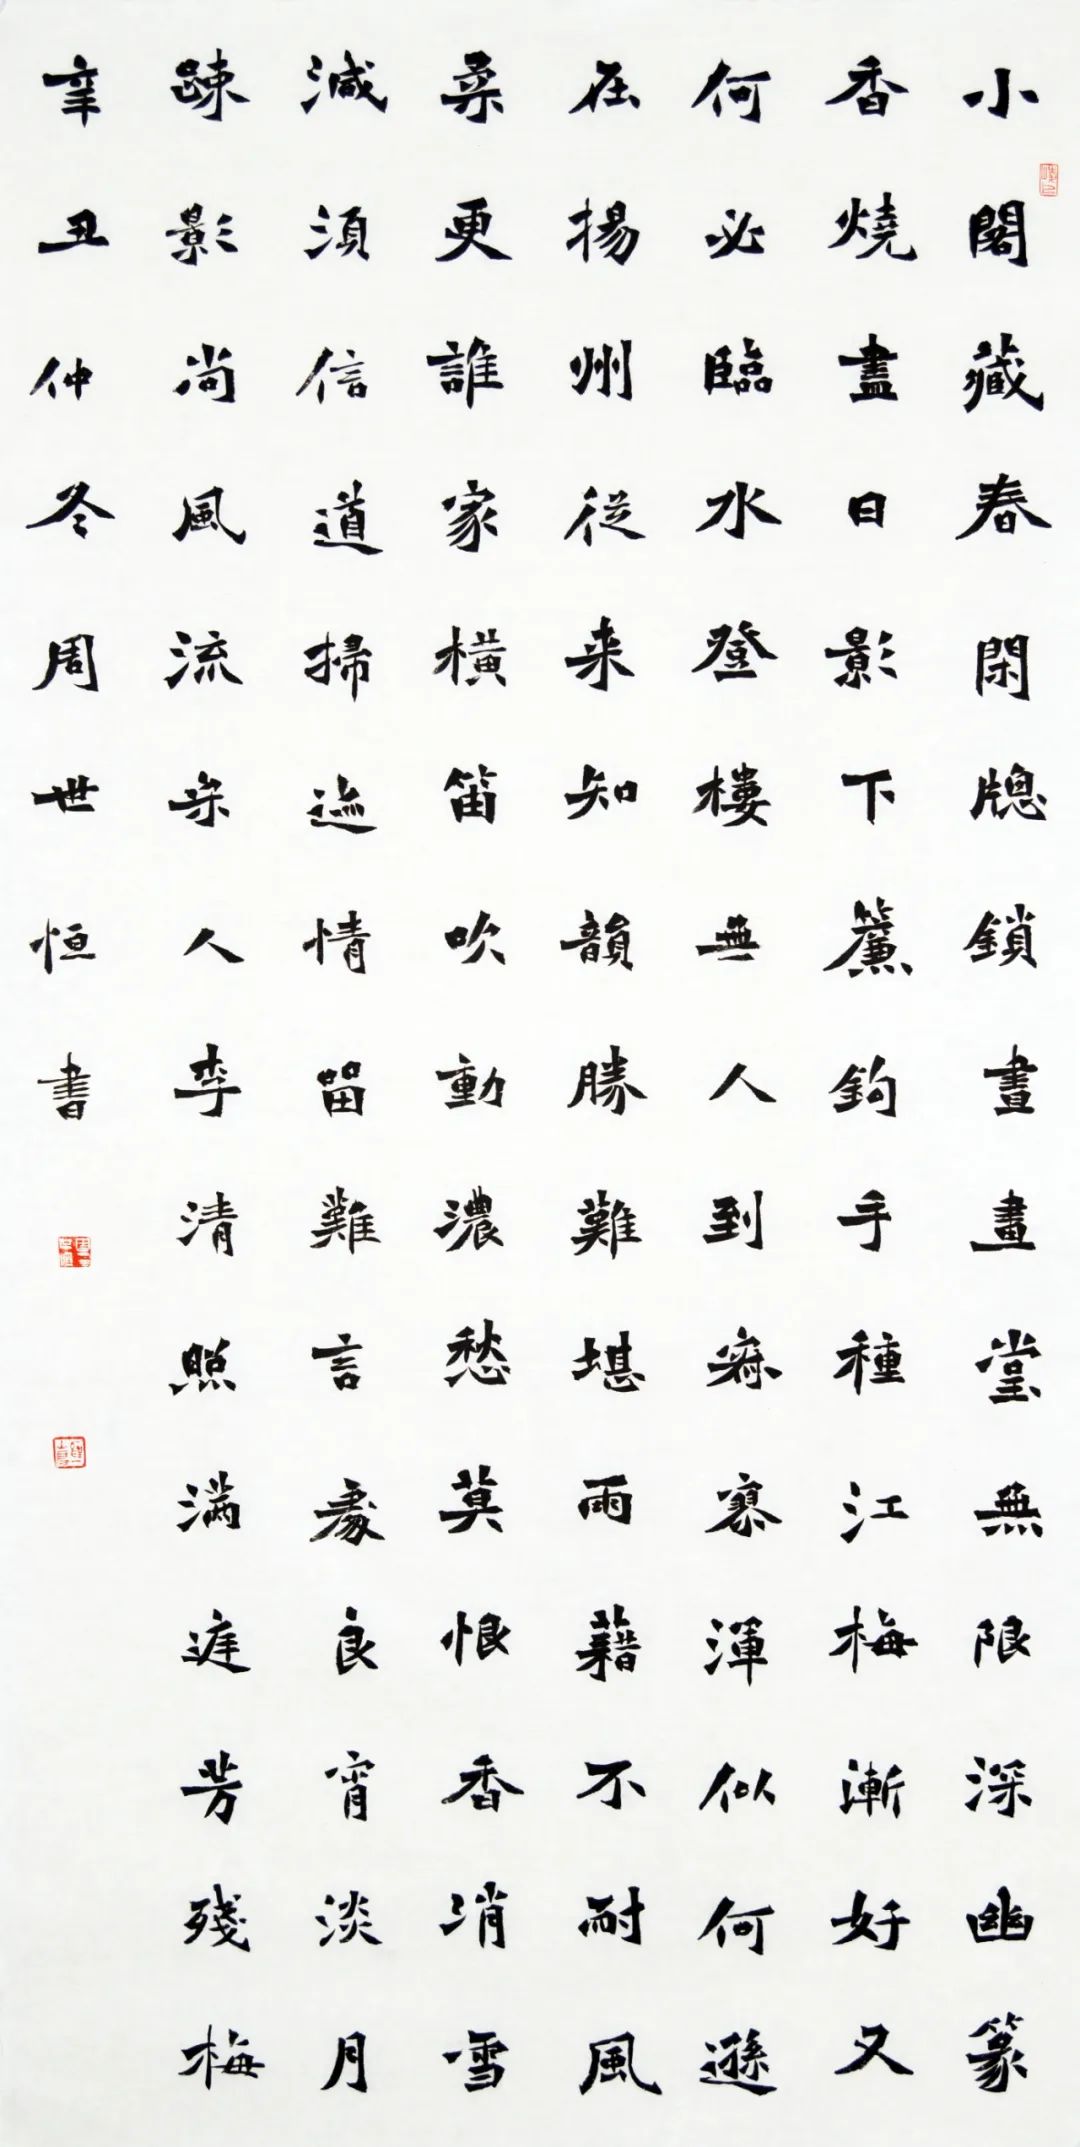 小閣藏春閑牕鎖晝畫堂無限深幽篆
香燒盡日影下簾鉤手種江梅漸好又
何必臨水登樓無人到寂寥渾似何遜
在揚州從来知韻勝難堪雨藉不耐風
柔更誰家橫笛吹動濃愁莫恨香消雪
減須信道掃迹情留難言處良宵淡月
踈影尚風流宋人李清照滿庭芳殘梅
辛丑仲冬周世恒書